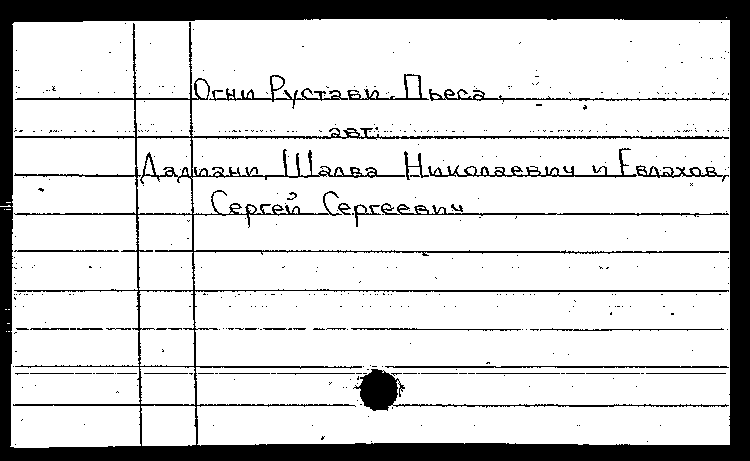 Огни Рустави. Пьеса.
авт.
Дадиани, Шалва Николаевич и Евлахов,
Сергей Сергеевич